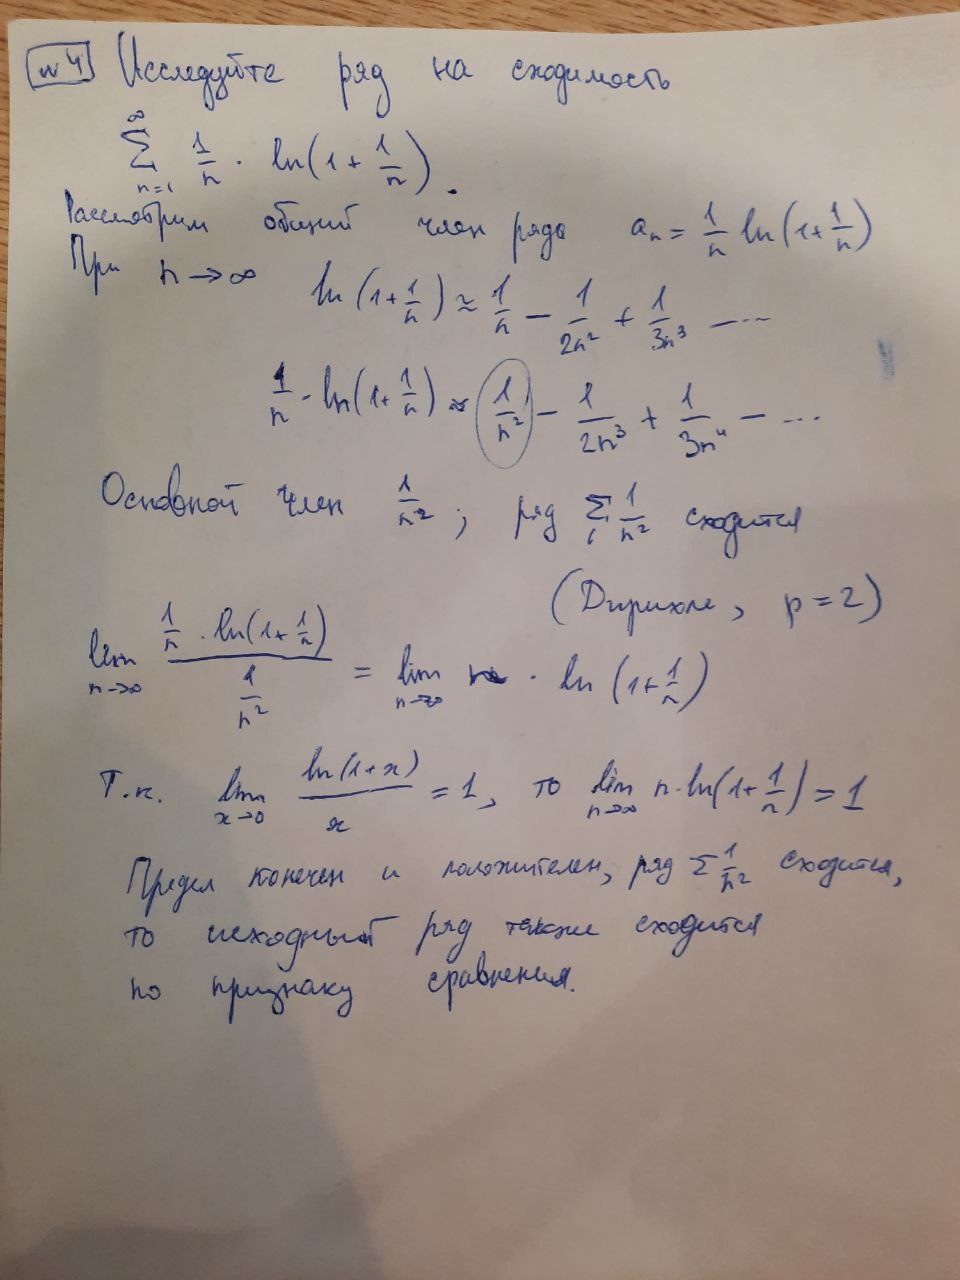 №4 Исследуйте ряд на сходимость
∞ ∑ n=1 1/n · ln(1 + 1/n).
Рассмотрим общий член ряда aₙ = 1/n ln(1+1/n)
При n → ∞
ln(1+1/n) ≈ 1/n − 1/2n² + 1/3n³ − ...
1/n · ln(1+1/n) ≈ 1/n² − 1/2n³ + 1/3n⁴ − ...
Основной член 1/n² ; ряд ∑ 1/n² сходится
(Дирихле, p = 2)
lim n→∞ (1/n · ln(1+1/n)) / (1/n²) = lim n→∞ n · ln(1+1/n)
Т.к. lim x→0 ln(1+x)/x = 1, то lim n→∞ n·ln(1+1/n) = 1
Предел конечен и положителен, ряд ∑ 1/n² сходится,
то исходный ряд также сходится
по признаку сравнения.